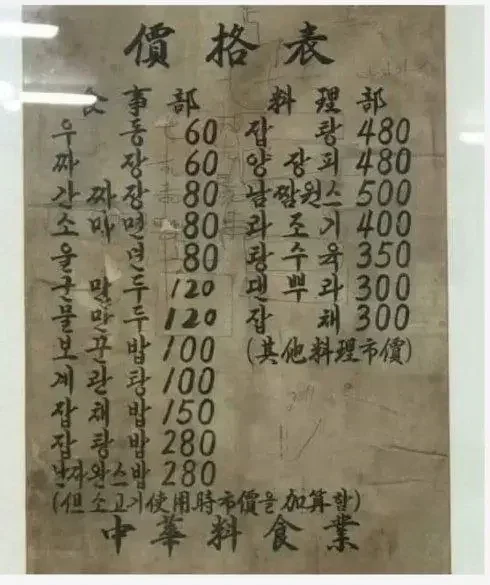 價格表
食事部
우동 60
짜장 60
간짜장 80
소마면 80
울면 80
군만두 120
물만두 120
보꾼밥 100
계란탕 100
잡채밥 150
잡탕밥 280
난자완스밥 280
料理部
잡탕 480
양장피 480
남짤원스 500
라조기 400
탕수육 350
덴뿌라 300
잡채 300
(其他料理市價)
(但소고기使用時市價을加算함)
中華料食業